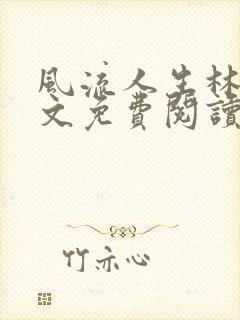 風流人生林
文免費閱讀
竹亦心